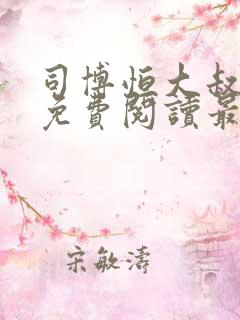 司博恒大叔
免費閱讀最
宋敏濤